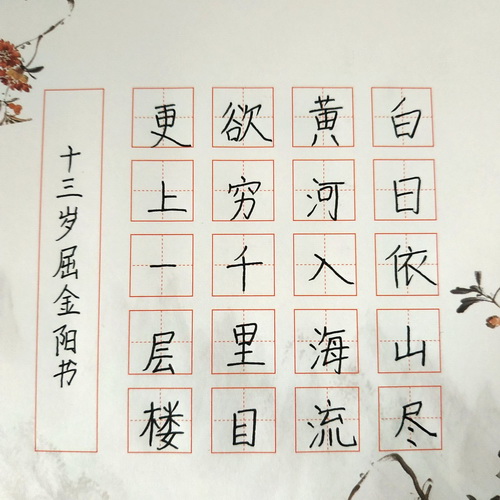 白日依山尽
黄河入海流
欲穷千里目
更上一层楼
十三岁屈金阳书